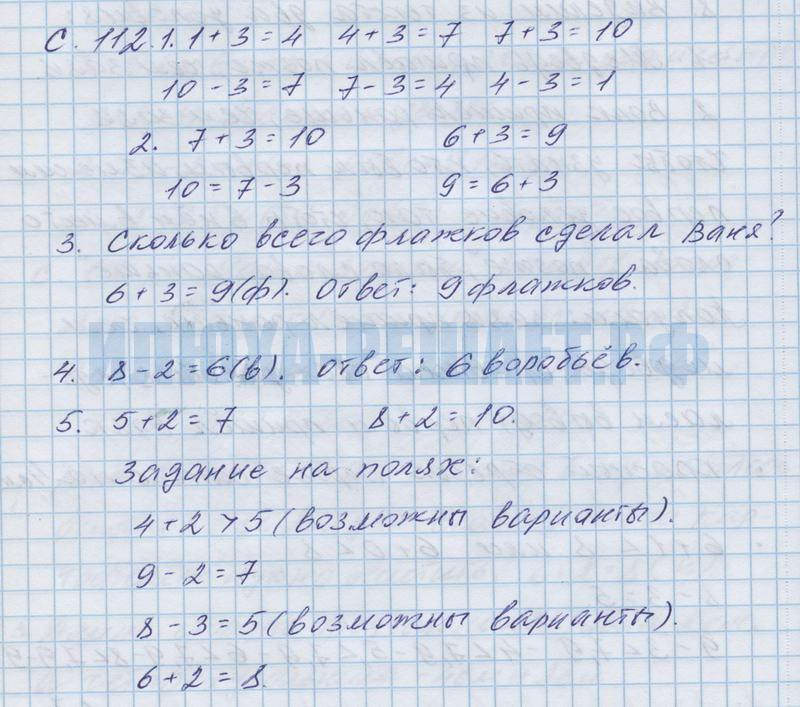 С. 112. 1. 1 + 3 = 4 4 + 3 = 7 7 + 3 = 10
10 - 3 = 7 7 - 3 = 4 4 - 3 = 1
2. 7 + 3 = 10 6 + 3 = 9
10 = 7 - 3 9 = 6 + 3
3. Сколько всего флажков сделал Ваня?
6 + 3 = 9(ф). Ответ: 9 флажков.
ИЛЮХА-РЕШАЕТ.РФ
4. 8 - 2 = 6(в). Ответ: 6 воробьёв.
5. 5 + 2 = 7 8 + 2 = 10.
Задание на полях:
4 + 2 > 5 (возможны варианты).
9 - 2 = 7
8 - 3 = 5 (возможны варианты).
6 + 2 = 8.